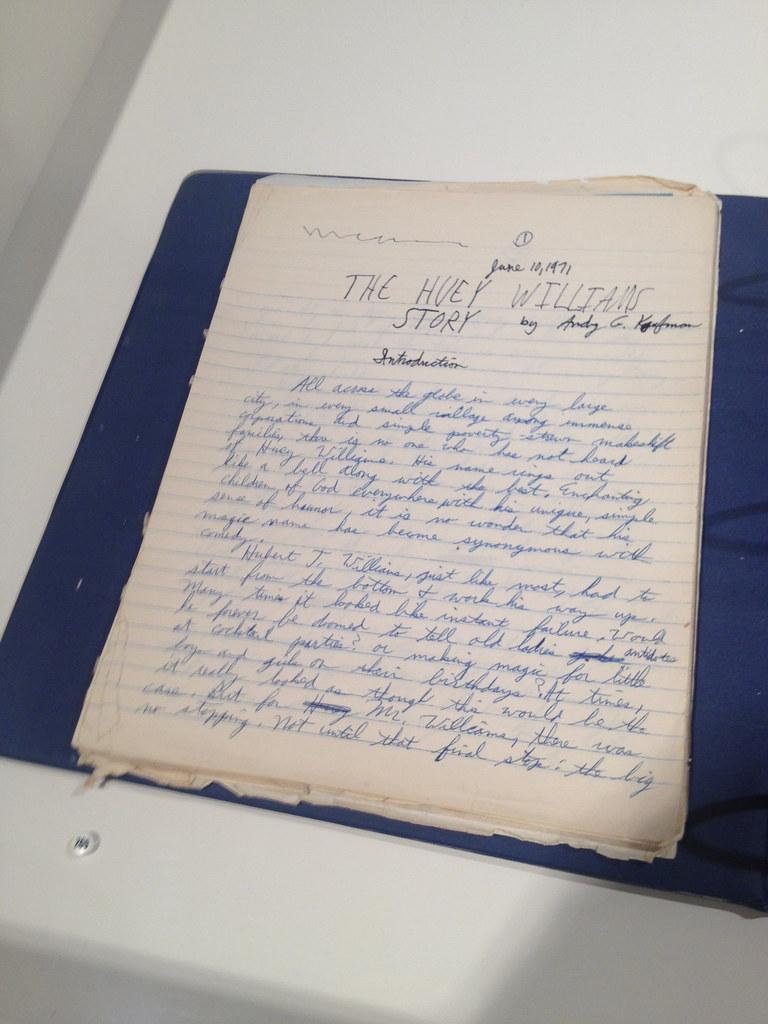 ①
June 10, 1971
THE HUEY WILLIAMS
STORY by Andy G. Kaufman
Introduction
All across the globe in every large
city, in every small village among immense
corporations and simple poverty strewn makeshift
families, there is no one who has not heard
of Huey Williams. His name rings out
like a bell along with the best. Enchanting
children of God everywhere with his unique, simple
sense of humor, it is no wonder that his
magic name has become synonymous with
comedy.
Hubert T. Williams, just like most, had to
start from the bottom & work his way up.
Many times it looked like instant failure. Would
he forever be doomed to tell old ladies antidotes
at cocktail parties? or making magic for little
boys and girls on their birthdays? At times,
it really looked as though this would be the
case. But for Mr. Williams, there was
no stopping. Not until that final step: the big
700